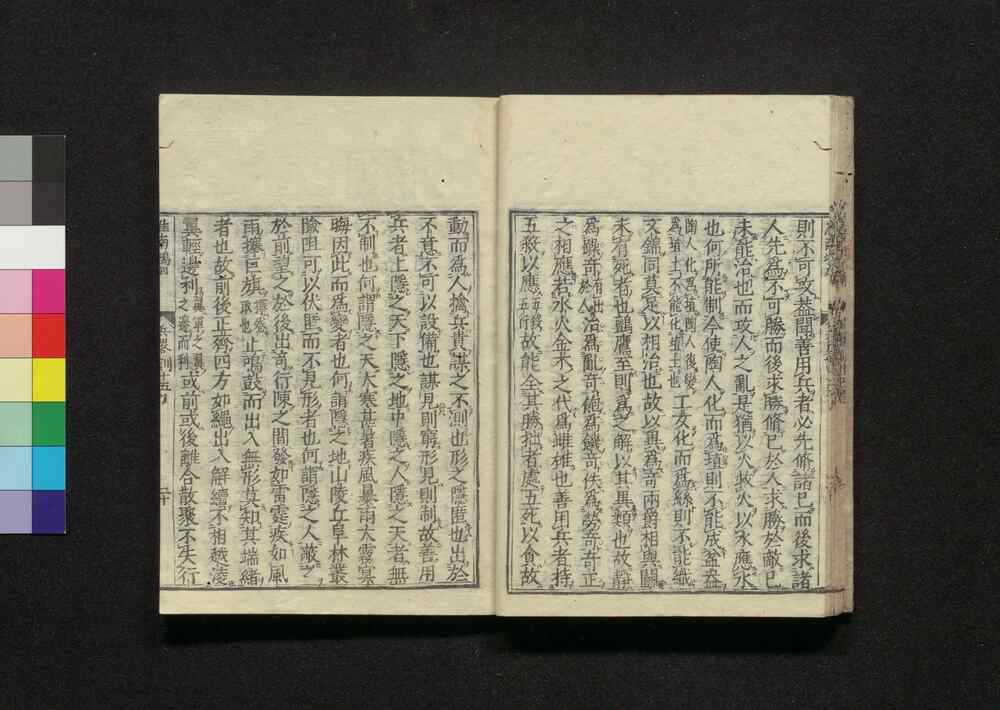 則不可攻葢聞善用兵者必先脩諸已而後求諸
人先爲不可勝而後求勝脩已於人求勝於敵已
未能治也而攻人之亂是猶以火救火以水應水
也何所能制今使陶人化而爲埴則不能成盆盎
陶人化爲埴陶人復變
爲埴土不能化埴土也
工女化而爲絲則不能織
文錦同莫足以相治也故以異爲奇兩爵相與鬬
未有死者也鸇鷹至則爲之解以其異類也故靜
爲躁奇
有出於人
治爲亂奇飽爲饑奇佚爲勞奇奇正
之相應若水火金木之代爲雌雄也善用兵者持
五殺以應
五殺五行
故能全其勝拙者處五死以貪故
動而爲人擒兵貴謀之不測也形之隱匿也出於
不意不可以設備也謀見則窮形見則制故善用
兵者上隱之天下隱之地中隱之人隱之天者無
不制也何謂隱之天大寒甚暑疾風暴雨大霧冥
晦因此而爲變者也何謂隱之地山陵丘阜林叢
險阻可以伏匿而不見形者也何謂隱之人蔽之
於前望之於後出奇行陳之間發如雷霆疾如風
雨攓巨旗
取也
止鳴鼓而出入無形莫知其端緒
者也故前後正齊四方如繩出入解續不相越凌
翼輕邊利
或前或後離合散聚不失行
兵畧訓
二十